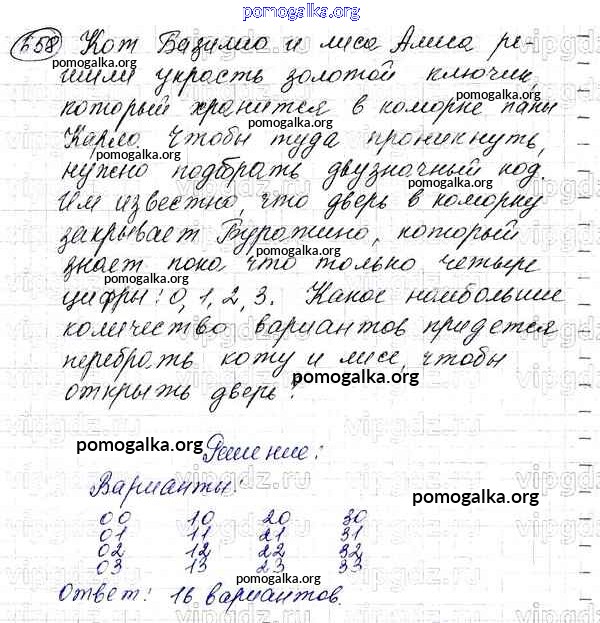 pomogalka.org
658 Кот Базилио и лиса Алиса ре-
шили украсть золотой ключик,
который хранится в каморке папы
pomogalka.org
Карло. Чтобы туда проникнуть,
pomogalka.org
нужно подобрать двузначный код.
pomogalka.org
Им известно, что дверь в каморку
закрывает Буратино, который
pomogalka.org
знает пока что только четыре
цифры: 0, 1, 2, 3. Какое наибольшее
количество вариантов придется
перебрать коту и лисе, чтобы
pomogalka.org
открыть дверь?
pomogalka.org Решение:
Варианты:
pomogalka.org
00 10 20 30
01 11 21 31
02 12 22 32
03 13 23 33
pomogalka.org
Ответ: 16 вариантов.
vipgdz.ru